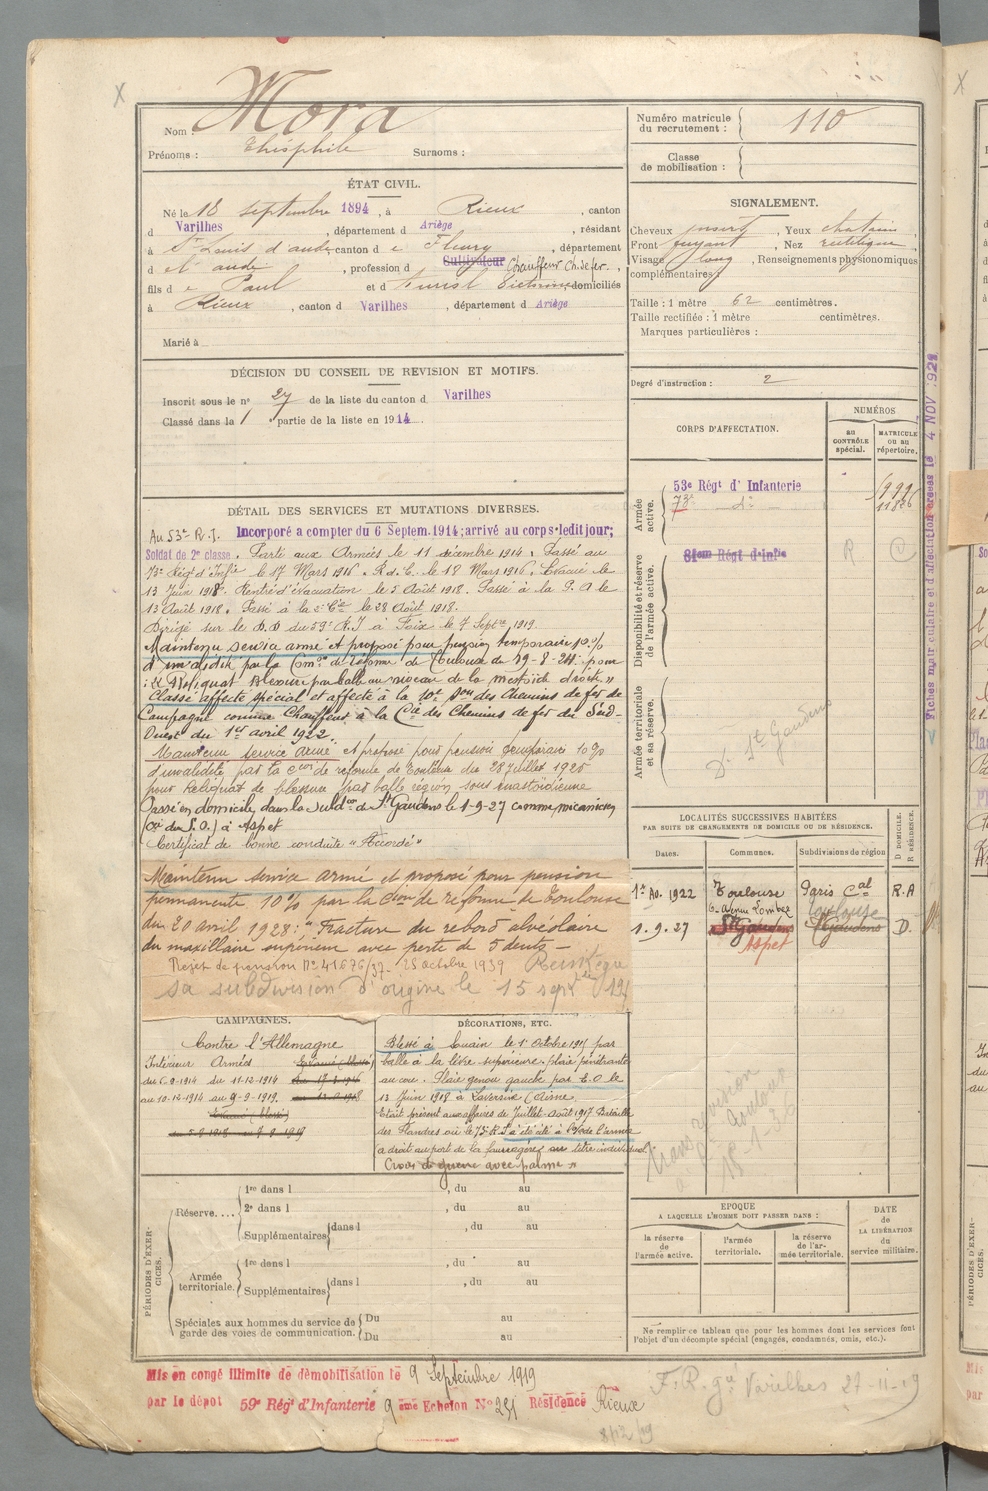 Nom : Mora
Prénoms : Théophile Surnoms :
Numéro matricule du recrutement : 110
Classe de mobilisation :
ÉTAT CIVIL.
Né le 18 septembre 1894, à Rieux, canton
d Varilhes, département d Ariège, résidant
à St Louis d'aude, canton d e Fleury, département
d e l'aude, profession d Cultivateur Chauffeur Ch. de fer.,
fils d e Paul et d domiciliés
à Rieux, canton d Varilhes, département d Ariège
Marié à
SIGNALEMENT.
Cheveux , Yeux chatain
Front fuyant, Nez rectiligne
Visage long, Renseignements physionomiques
complémentaires :
Taille : 1 mètre 62 centimètres.
Taille rectifiée : 1 mètre centimètres.
Marques particulières :
Degré d'instruction : 2
DÉCISION DU CONSEIL DE REVISION ET MOTIFS.
Inscrit sous le nº 27 de la liste du canton d Varilhes
Classé dans la 1 partie de la liste en 1914.
CORPS D'AFFECTATION.
NUMÉROS
au CONTRÔLE spécial.
MATRICULE ou au répertoire.
Armée active.
53e Régt d'Infanterie
73e do
11826
Disponibilité et réserve de l'armée active.
81eme Régt d'Infie
R
C
Armée territoriale et sa réserve.
Don St Gaudens
Fiches matriculaire et d'affectation
4 NOV 192
DÉTAIL DES SERVICES ET MUTATIONS DIVERSES.
Au 53e R.I. Incorporé a compter du 6 Septem.1914; arrivé au corps ledit jour;
Soldat de 2e classe. Parti aux Armées le 11 décembre 1914. Passé au
73e Régt d'Infie le 17 Mars 1916. R.d.C. le 18 Mars 1916. Evacué le
13 Juin 1918. Rentré d'évacuation le 5 Août 1918. Passé à la P.A le
13 Août 1918. Passé à la 2e Cie le 28 Août 1918.
Dirigé sur le D.D du 59e R.I à Foix le 7 Septre 1919.
Maintenu service armé et proposé pour pension temporaire 10 %
d'invalidité par la Comon de réforme de Toulouse du 29-8-21 pour
"Reliquat blessure par balle au niveau de la mastoïde droite"
Classé affecté spécial et affecté à la 10e Son des Chemins de fer de
Campagne comme Chauffeur à la Cie des Chemins de fer du Sud-
Ouest du 1er avril 1922.
Maintenu service armé et proposé pour pension temporaire 10 %
d'invalidité par la Con de réforme de Toulouse du 28 Juillet 1925
pour reliquat de blessure par balle région sous mastoïdienne
Passé en domicile, dans la Subdon de St Gaudens le 1-9-27 comme mécanicien
(Cie du S.O.) à Aspet
Certificat de bonne conduite "Accordé"
Maintenu service armé et proposé pour pension
permanente 10 % par la Con de réforme de Toulouse
du 20 avril 1928 : "Fracture du rebord alvéolaire
du maxillaire supérieur avec perte de 5 dents -
Rejet de pension Nº 41676/37- 25 octobre 1939 Réintègre
sa subdivision d'origine le 15 sept
LOCALITÉS SUCCESSIVES HABITÉES
PAR SUITE DE CHANGEMENTS DE DOMICILE OU DE RÉSIDENCE.
Dates. Communes. Subdivisions de région D DOMICILE. R RÉSIDENCE.
1er Av. 1922 Toulouse Paris Cal R.A
6 Avenue Lombez Toulouse
1.9.27 St Gaudens St Gaudens D.
Aspet
CAMPAGNES.
Contre l'Allemagne
Intérieur Armées Evacué (blessé)
du 6-9-1914 du 11-12-1914
au 10-12-1914 au 9-9-1919.
Evacué (blessé)
DÉCORATIONS, ETC.
Blessé à le 1er Octobre 1915 par
balle à la lèvre supérieure. plaie pénétrante
au cou. Plaie genou gauche par E.O le
13 Juin 1918 à Laversine (Aisne)
Etait présent aux affaires de Juillet-Août 1917 Bataille
des Flandres où le 73e R.I a été cité à l'O/ de l'armée
a droit au port de la fourragère à titre individuel.
Croix de guerre avec palme "
18-1-36
PÉRIODES D'EXERCICES.
Réserve....
1re dans l , du au
2e dans l , du au
Supplémentaires dans l , du au
Armée territoriale.
1re dans l , du au
Supplémentaires dans l , du au
Spéciales aux hommes du service de garde des voies de communication.
Du au
Du au
EPOQUE
A LAQUELLE L'HOMME DOIT PASSER DANS :
la réserve de l'armée active.
l'armée territoriale.
la réserve de l'armée territoriale.
DATE de LA LIBÉRATION du service militaire.
Ne remplir ce tableau que pour les hommes dont les services font
l'objet d'un décompte spécial (engagés, condamnés, omis, etc.).
Mis en congé illimité de démobilisation le 9 Septembre 1919
par le dépôt 59e Régt d'Infanterie 9ème Echelon Nº 251 Résidence Rieux
F.R. Varilhes 27-11-19